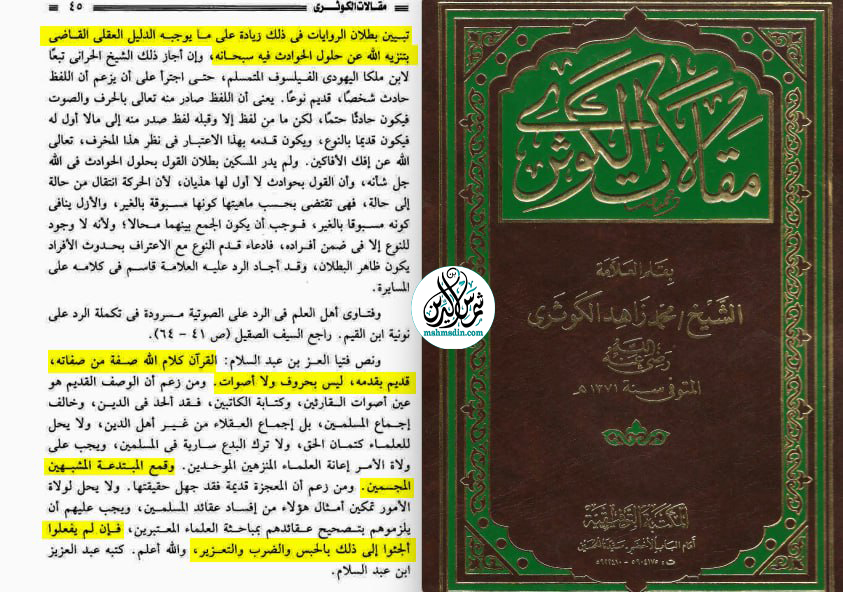 مقالات الكوثرى
٤٥
تبيين بطلان الروايات فى ذلك زيادة على ما يوجبه الدليل العقلى القاضى
بتنزيه الله عن حلول الحوادث فيه سبحانه، وإن أجاز ذلك الشيخ الحرانى تبعًا
لابن ملكا اليهودى الفيلسوف المتمسلم، حتى اجترأ على أن يزعم أن اللفظ
حادث شخصًا، قديم نوعًا. يعنى أن اللفظ صادر منه تعالى بالحرف والصوت
فيكون حادثًا حتمًا، لكن ما من لفظ إلا وقبله لفظ صدر منه إلى مالا أول له
فيكون قديمًا بالنوع، ويكون قدمه بهذا الاعتبار فى نظر هذا المخرف، تعالى
الله عن إفك الأفاكين. ولم يدر المسكين بطلان القول بحلول الحوادث فى الله
جل شأنه، وأن القول بحوادث لا أول لها هذيان، لأن الحركة انتقال من حالة
إلى حالة، فهى تقتضى بحسب ماهيتها كونها مسبوقة بالغير، والأزل ينافى
كونه مسبوقا بالغير، فوجب أن يكون الجمع بينهما محالا؛ ولأنه لا وجود
للنوع إلا فى ضمن أفراده، فادعاء قدم النوع مع الاعتراف بحدوث الأفراد
يكون ظاهر البطلان، وقد أجاد الرد عليه العلامة قاسم فى كلامه على
المسايرة.
وفتاوى أهل العلم فى الرد على الصوتية مسرودة فى تكملة الرد على
نونية ابن القيم. راجع السيف الصقيل (ص ٤١ – ٦٤).
ونص فتيا العز بن عبد السلام: القرآن كلام الله صفة من صفاته،
قديم بقدمه، ليس بحروف ولا أصوات. ومن زعم أن الوصف القديم هو
عين أصوات القارئين، وكتابة الكاتبين، فقد ألحد فى الدين، وخالف
إجماع المسلمين، بل إجماع العقلاء من غير أهل الدين، ولا يحل
للعلماء كتمان الحق، ولا ترك البدع سارية فى المسلمين، ويجب على
ولاة الأمر إعانة العلماء المنزهين الموحدين. وقمع المبتدعة المشبهين
المجسمين. ومن زعم أن المعجزة قديمة فقد جهل حقيقتها. ولا يحل لولاة
الأمور تمكين أمثال هؤلاء من إفساد عقائد المسلمين، ويجب عليهم أن
يلزموهم بتصحيح عقائدهم بمباحثة العلماء المعتبرين، فإن لم يفعلوا
ألجئوا إلى ذلك بالحبس والضرب والتعزير، والله أعلم. كتبه عبد العزيز
ابن عبد السلام.
مقالات الكوثرى
بقلم العلامة
الشيخ/ محمد زاهد الكوثرى
رضى الله عنه
المتوفى سنة ١٣٧١ هـ
المكتبة التوفيقية
أمام الباب الأخضر - سيدنا الحسين
ت: ٥٩٠٤١٧٥ - ٥٩٢٢٤١٠
شمس الدين
mahmsdin.com